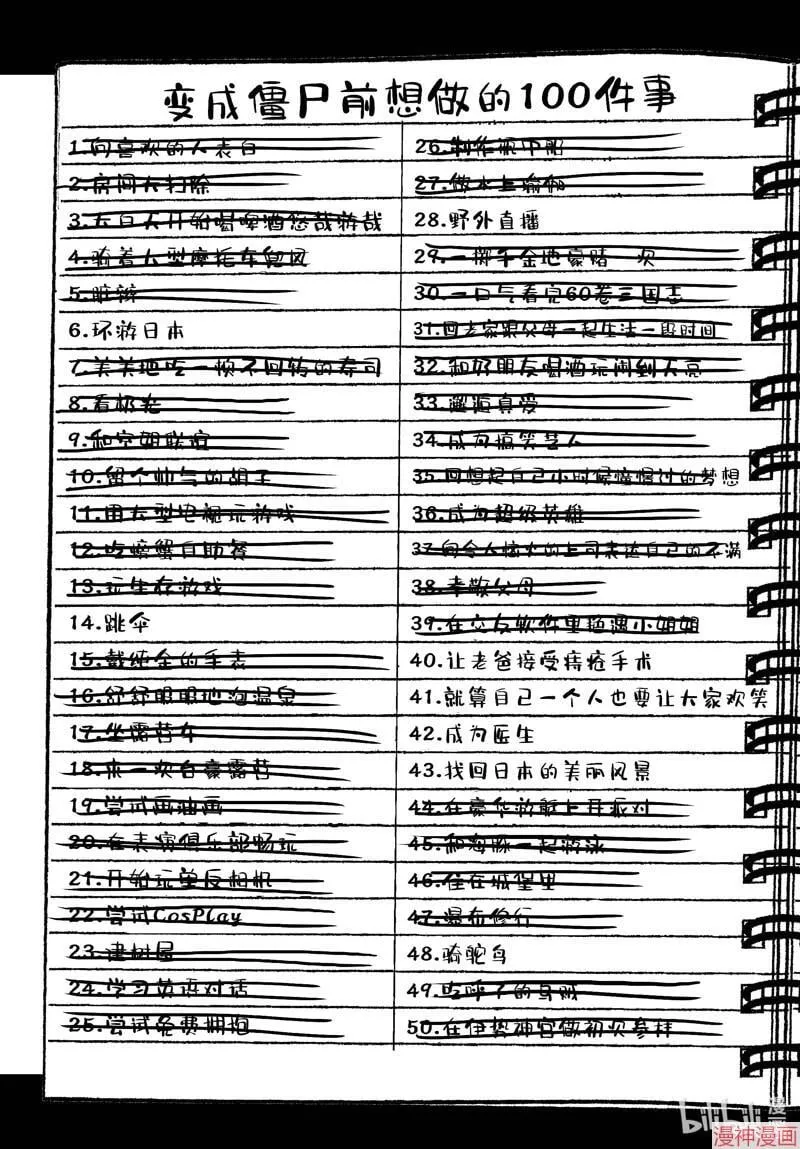 变成僵尸前想做的100件事
1.向喜欢的人表白
2.房间大扫除
3.大白天开始喝啤酒悠哉游哉
4.骑着大型摩托车兜风
5.脏辫
6.环游日本
7.美美地吃一顿不回转的寿司
8.看极光
9.和空姐联谊
10.留个帅气的胡子
11.用大型电视玩游戏
12.吃螃蟹自助餐
13.玩生存游戏
14.跳伞
15.戴纯金的手表
16.舒舒服服地泡温泉
17.坐露营车
18.来一次自豪露营
19.尝试画油画
20.在表演俱乐部畅玩
21.开始玩单反相机
22.尝试CosPlay
23.建树屋
24.学习英语对话
25.尝试免费拥抱
26.制作瓶中船
27.做水上瑜伽
28.野外直播
29.一掷千金地豪赌一次
30.一口气看完60卷三国志
31.回老家跟父母一起生活一段时间
32.和好朋友喝酒玩闹到天亮
33.邂逅真爱
34.成为搞笑艺人
35.回想起自己小时候憧憬过的梦想
36.成为超级英雄
37.向令人恼火的上司表达自己的不满
38.孝敬父母
39.在交友软件里拍遇小姐姐
40.让老爸接受痔疮手术
41.就算自己一个人也要让大家欢笑
42.成为医生
43.找回日本的美丽风景
44.在豪华游艇上开派对
45.和海豚一起游泳
46.住在城堡里
47.瀑布修行
48.骑鸵鸟
49.吃呼子的乌贼
50.在伊势神宫做初次参拜
bilibili 漫画
漫神漫画